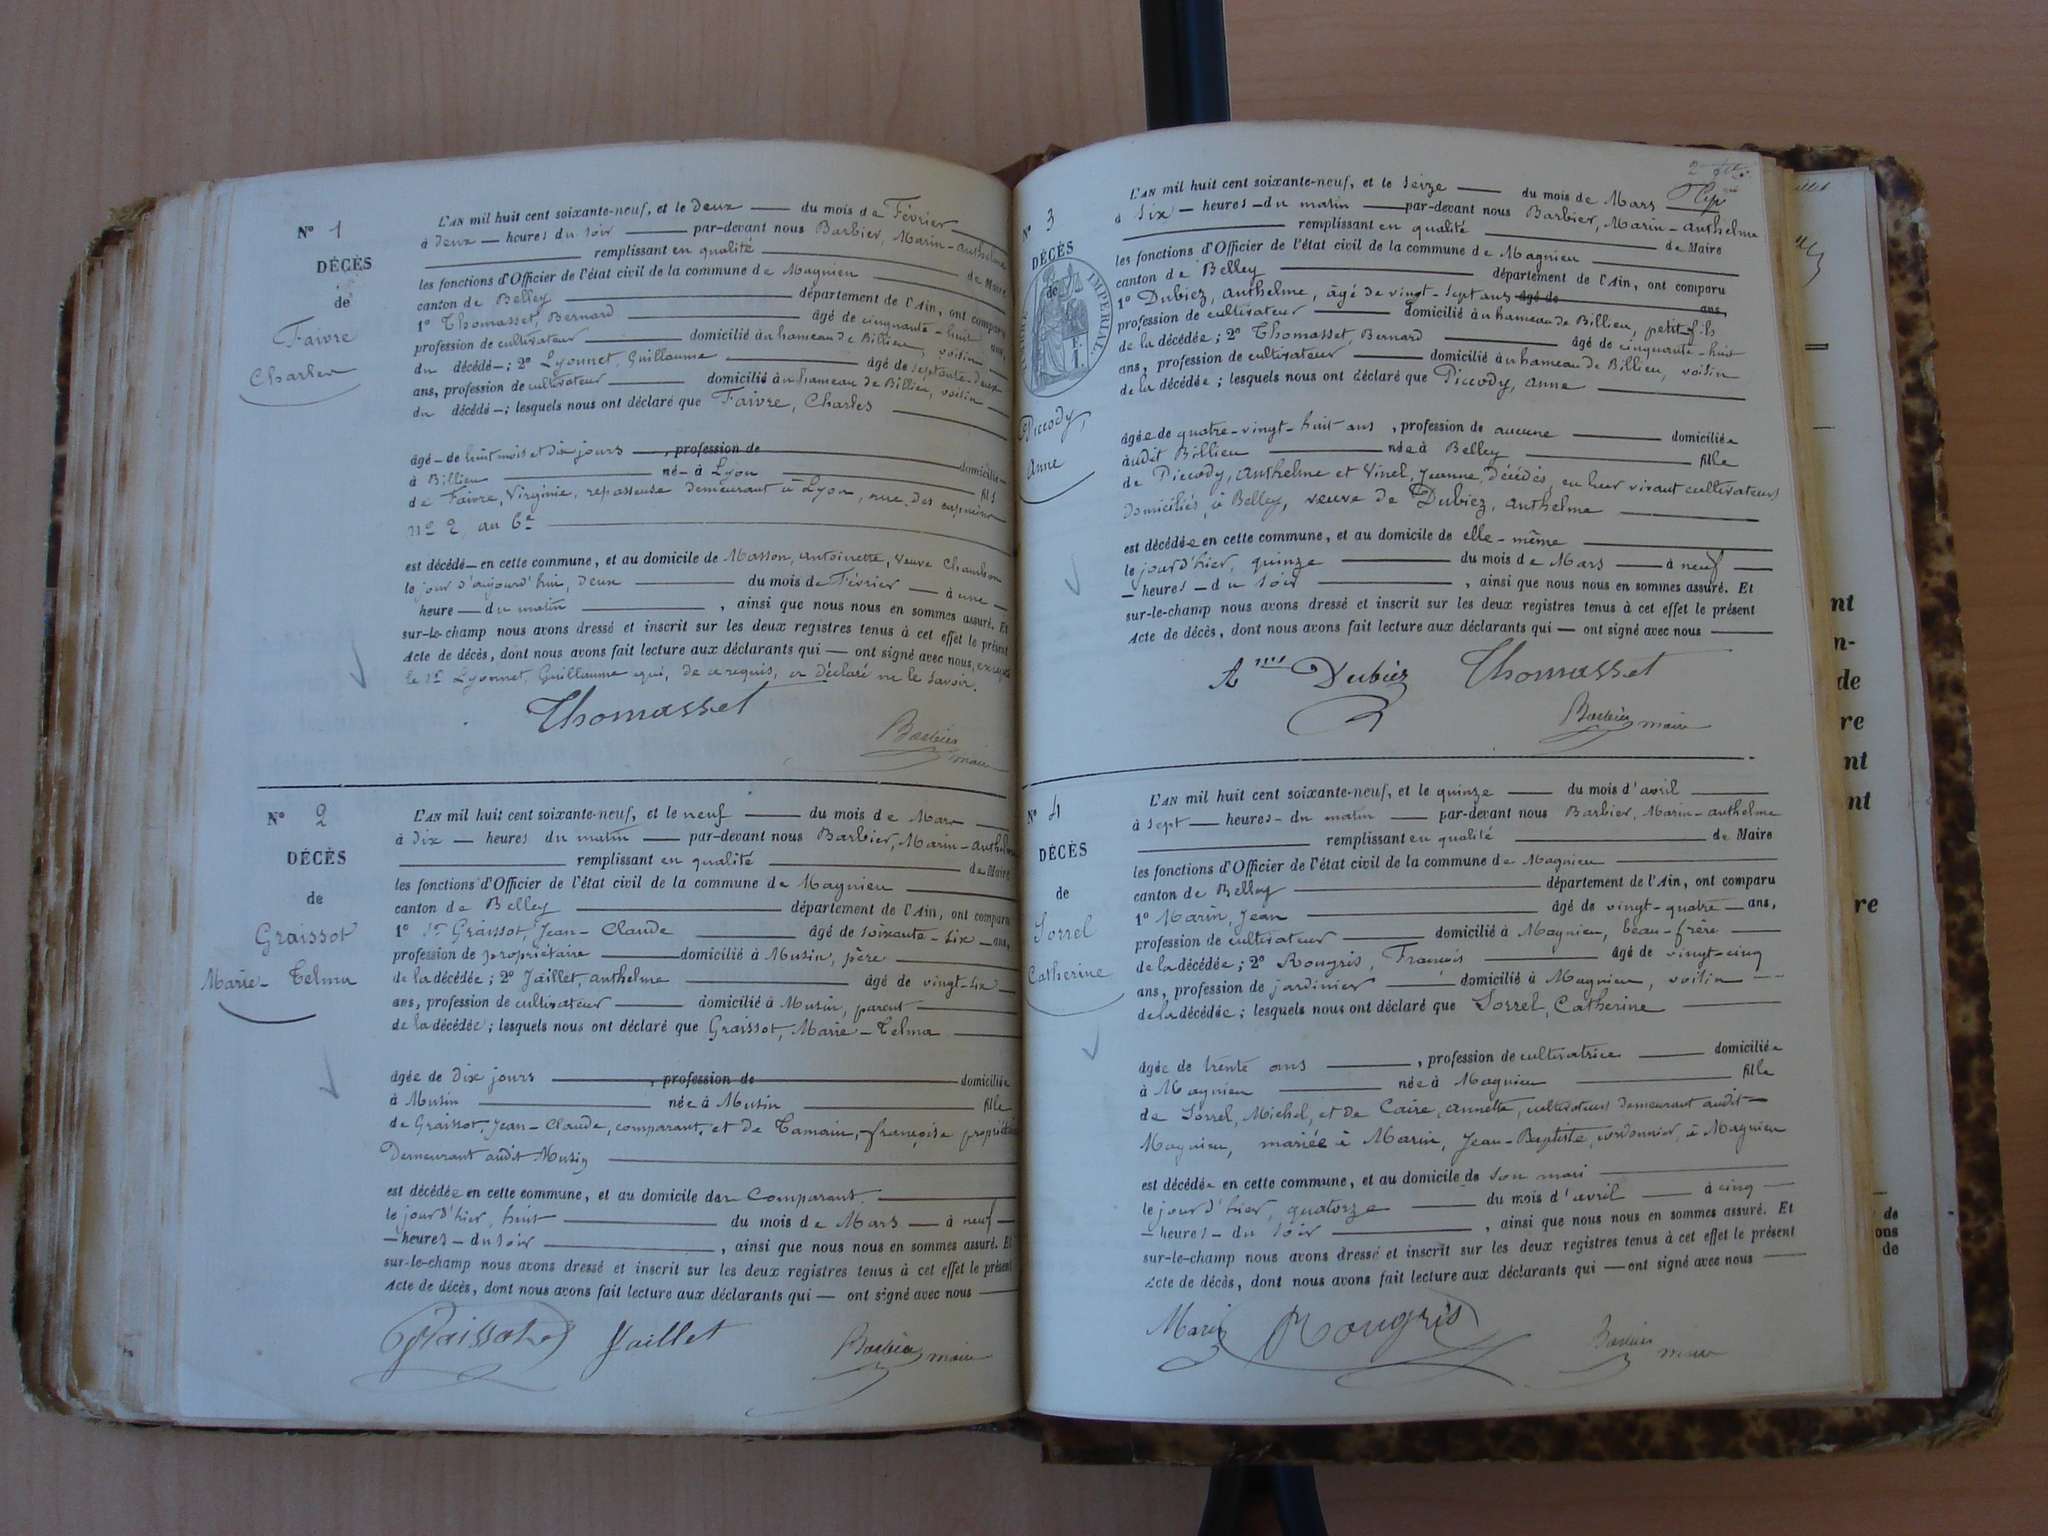 N° 1
DÉCÈS
de
Faivre
Charles
L'AN mil huit cent soixante-neuf, et le deux du mois de Février
à deux heures du soir par-devant nous Barbier, Marin-Anthelme
remplissant en qualité de Maire
les fonctions d'Officier de l'état civil de la commune de Magnieu
canton de Belley département de l'Ain, ont comparu
1° Thomasset, Bernard âgé de cinquante-huit ans,
profession de cultivateur domicilié au hameau de Billieu, voisin
du décédé; 2° Lyonnet, Guillaume âgé de septante-deux
ans, profession de cultivateur domicilié au hameau de Billieu, voisin
du décédé; lesquels nous ont déclaré que Faivre, Charles
âgé de huit mois et dix jours, profession de domicilié
à Billieu né à Lyon fils
de Faivre, Virginie, repasseuse demeurant à Lyon, rue des
n° 2, au 6e
est décédé en cette commune, et au domicile de Masson, Antoinette, veuve Chambon
le jour d'aujourd'hui, deux du mois de Février à une
heure du matin, ainsi que nous nous en sommes assuré. Et
sur-le-champ nous avons dressé et inscrit sur les deux registres tenus à cet effet le présent
Acte de décès, dont nous avons fait lecture aux déclarants qui ont signé avec nous, excepté
le sr Lyonnet, Guillaume qui, de ce requis, a déclaré ne le savoir.
Thomasset
Barbier maire
N° 2
DÉCÈS
de
Graissot
Marie-Telma
L'AN mil huit cent soixante-neuf, et le neuf du mois de Mars
à dix heures du matin par-devant nous Barbier, Marin-Anthelme
remplissant en qualité de Maire
les fonctions d'Officier de l'état civil de la commune de Magnieu
canton de Belley département de l'Ain, ont comparu
1° sr Graissot, Jean-Claude âgé de soixante-six ans,
profession de propriétaire domicilié à Musin, père
de la décédée; 2° Jaillet, Anthelme âgé de vingt-six
ans, profession de cultivateur domicilié à Musin, parent
de la décédée; lesquels nous ont déclaré que Graissot, Marie-Telma
âgée de dix jours, profession de domiciliée
à Musin née à Musin fille
de Graissot, Jean-Claude, comparant, et de Tamain, françoise
demeurant audit Musin
est décédée en cette commune, et au domicile du Comparant.
le jour d'hier, huit du mois de Mars à neuf
heures du soir, ainsi que nous nous en sommes assuré. Et
sur-le-champ nous avons dressé et inscrit sur les deux registres tenus à cet effet le présent
Acte de décès, dont nous avons fait lecture aux déclarants qui ont signé avec nous
Graissot Jaillet Barbier maire
2
N° 3
DÉCÈS
de
TIMBRE IMPÉRIAL
Piccody,
Anne
L'AN mil huit cent soixante-neuf, et le seize du mois de Mars
à six heures du matin par-devant nous Barbier, Marin-Anthelme
remplissant en qualité de Maire
les fonctions d'Officier de l'état civil de la commune de Magnieu
canton de Belley département de l'Ain, ont comparu
1° Dubiez, Anthelme, âgé de vingt-sept ans âgé de ans,
profession de cultivateur domicilié au hameau de Billieu, petit-fils
de la décédée; 2° Thomasset, Bernard âgé de cinquante-huit
ans, profession de cultivateur domicilié au hameau de Billieu, voisin
de la décédée; lesquels nous ont déclaré que Piccody, Anne
âgée de quatre-vingt-huit ans, profession de aucune domiciliée
audit Billieu née à Belley fille
de Piccody, Anthelme et Vinel, Jeanne, décédés, en leur vivant cultivateurs
domiciliés à Belley, veuve de Dubiez, Anthelme
est décédée en cette commune, et au domicile de elle-même
le jour d'hier, quinze du mois de Mars à neuf
heures du soir, ainsi que nous nous en sommes assuré. Et
sur-le-champ nous avons dressé et inscrit sur les deux registres tenus à cet effet le présent
Acte de décès, dont nous avons fait lecture aux déclarants qui ont signé avec nous
Ame Dubiez Thomasset
Barbier maire
N° 4
DÉCÈS
de
Sorrel
Catherine
L'AN mil huit cent soixante-neuf, et le quinze du mois d'avril
à sept heures du matin par-devant nous Barbier, Marin-Anthelme
remplissant en qualité de Maire
les fonctions d'Officier de l'état civil de la commune de Magnieu
canton de Belley département de l'Ain, ont comparu
1° Marin, Jean âgé de vingt-quatre ans,
profession de cultivateur domicilié à Magnieu, beau-frère
de la décédée; 2° Rongris, François âgé de vingt-cinq
ans, profession de jardinier domicilié à Magnieu, voisin
de la décédée; lesquels nous ont déclaré que Sorrel, Catherine
âgée de trente ans, profession de cultivatrice domiciliée
à Magnieu née à Magnieu fille
de Sorrel, Michel, et de Caire, Annette, cultivateurs demeurant audit
Magnieu, mariée à Marin, Jean-Baptiste, cordonnier, à Magnieu
est décédée en cette commune, et au domicile de son mari
le jour d'hier, quatorze du mois d'avril à cinq
heures du soir, ainsi que nous nous en sommes assuré. Et
sur-le-champ nous avons dressé et inscrit sur les deux registres tenus à cet effet le présent
Acte de décès, dont nous avons fait lecture aux déclarants qui ont signé avec nous
Marin Rongris Barbier maire